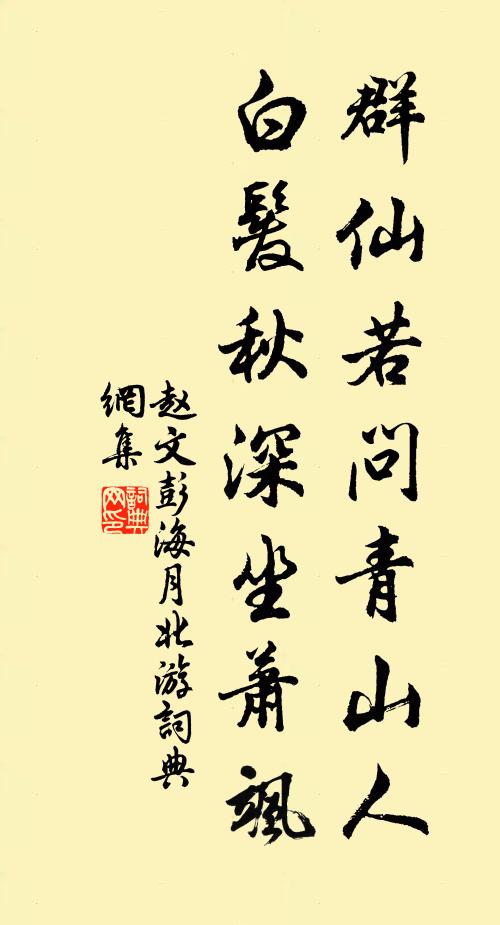 群仙若问青山人
白髮秋深坐萧飒
赵文彭海月北游詞典
網集
詞典
网印